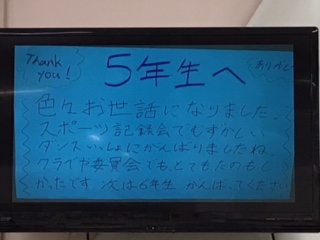 Thank you!
５年生へ
ありがとう
色々お世話になりました。
スポーツ記録会でむずかしい
ダンスいっしょにがんばりましたね
クラブや委員会でも、とてもたのもし
かったです 次は６年生 がんばってください